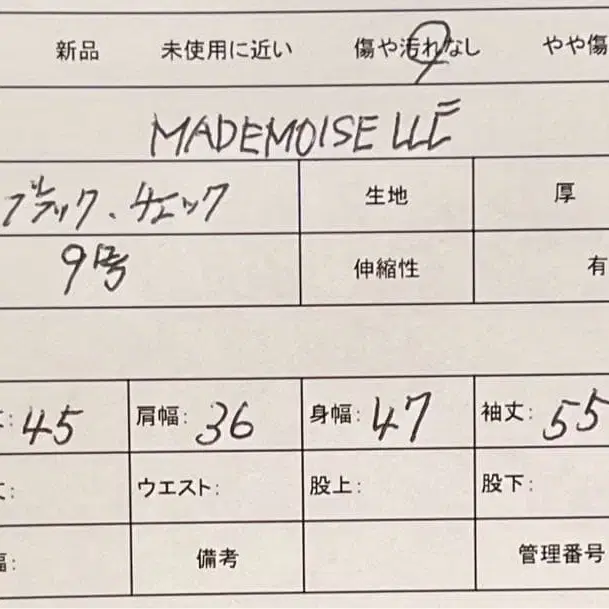 新品 未使用に近い 傷や汚れなし やや傷
MADEMOISELLE
ブラック、チェック 生地 厚
9号 伸縮性 有
: 45 肩幅: 36 身幅: 47 袖丈: 55
丈: ウエスト: 股上: 股下:
幅: 備考 管理番号